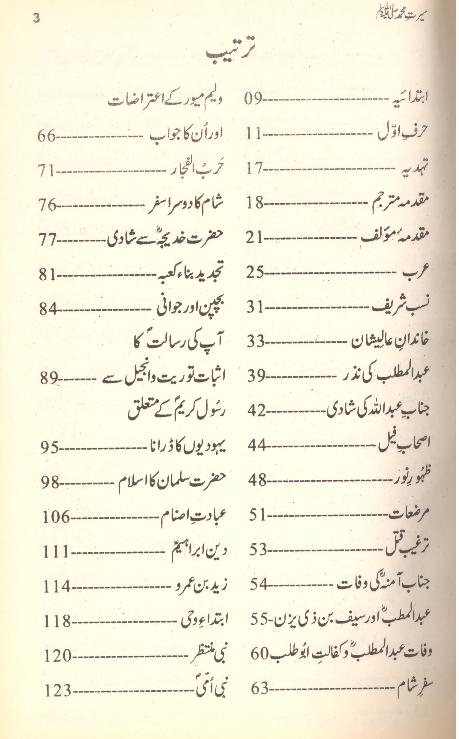 سیرتِ محمد ﷺ
3
ترتیب
ابتدائیہ------------------09
حرفِ اوّل------------------11
تہدیہ------------------17
مقدمہ مترجم------------------18
مقدمۂ مؤلف------------------21
عرب------------------25
نسب شریف------------------31
خاندانِ عالیشان------------------33
عبدالمطلب کی نذر------------------39
جناب عبداللہ کی شادی------------------42
اصحابِ فیل------------------44
ظہورِ نور------------------48
مرضعات------------------51
ترغیبِ قتل------------------53
جناب آمنہؓ کی وفات------------------54
عبدالمطلبؓ اور سیف بن ذی یزن-55
وفات عبدالمطلبؓ و کفالتِ ابوطلب 60
سفرِ شام------------------63
ولیم میور کے اعتراضات
اور اُن کا جواب------------------66
حَربُ الفجار------------------71
شام کا دوسرا سفر------------------76
حضرت خدیجہؓ سے شادی------------------77
تجدید بناء کعبہ------------------81
بچپن اور جوانی------------------84
آپ کی رسالتؐ کا
اثبات توریت و انجیل سے------------------89
رسُولِ کریمؐ کے متعلق
یہودیوں کا ڈرانا------------------95
حضرت سلمان کا اسلام------------------98
عبادتِ اصنام------------------106
دین ابراہیمؑ------------------111
زید بن عمرو------------------114
ابتداءِ وحی------------------118
نبی منتظر------------------120
نبی اُمّیؐ------------------123